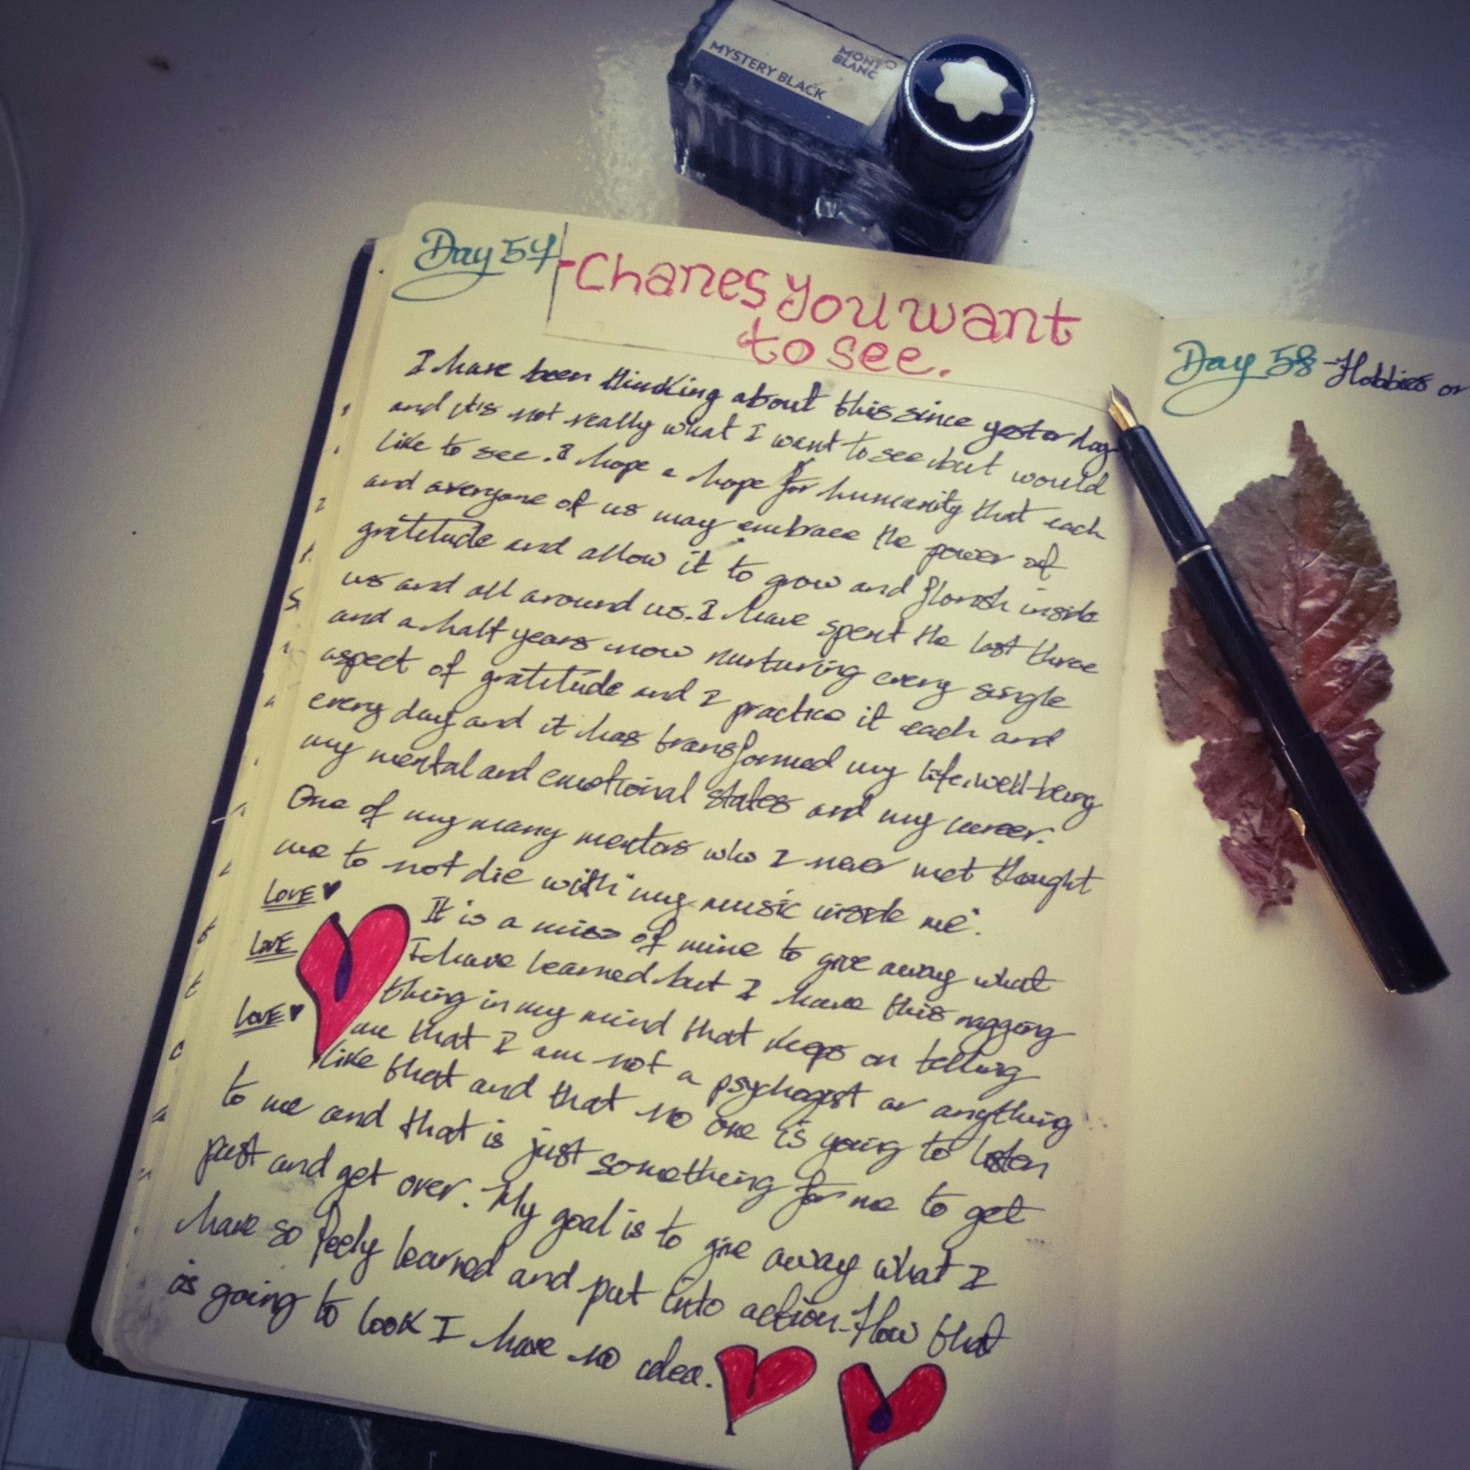 MYSTERY BLACK
MONT
BLANC
Day 57
-Chanes you want
to see.
I have been thinking about this since yesterday
and it's not really what I want to see but would
like to see. I hope a hope for humanity that each
and averyone of us may embrace the power of
gratitude and allow it to grow and florish inside
us and all around us. I have spent the last three
and a half years now nurturing every single
aspect of gratitude and I practice it each and
every day and it has transformed my life, well-being
my mental and emotional states and my career.
One of my many mentors who I never met thought
me to not die with "my music inside me".
LOVE ♥
It is a miss of mine to give away what
LOVE
I have learned but I have this nagging
thing in my mind that keeps on telling
LOVE ♥
me that I am not a psychogist or anything
like that and that no one is going to listen
to me and that is just something for me to get
past and get over. My goal is to give away what I
have so feely learned and put into action. How that
is going to look I have no idea.
Day 58 - Hobbies or